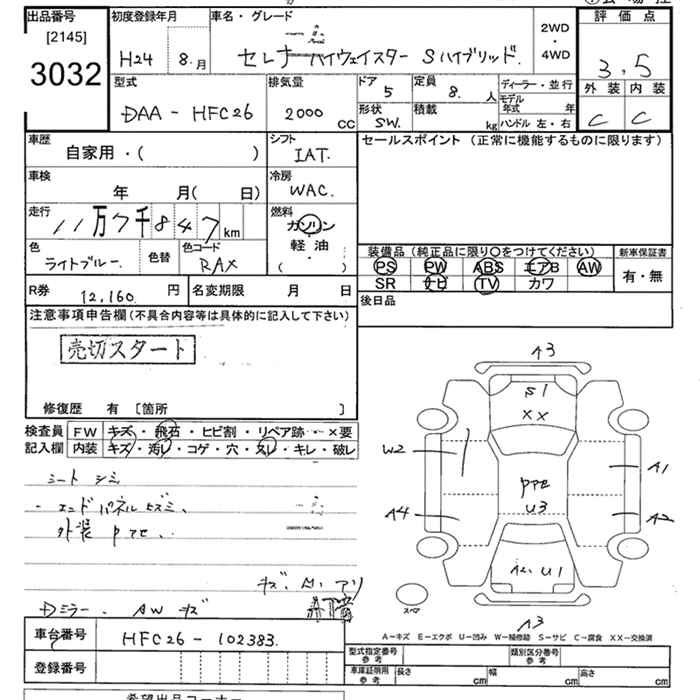 出品番号 初度登録年月 車名・グレード 評価点
[2145]
3032
H24 8.月 セレナ ハイウェイスター Sハイブリッド. 2WD・4WD 3.5
型式 排気量 ドア 5 定員 8. 人 ディーラー・並行 外装 内装
DAA - HFC26 2000 CC 形状 SW. 積載 kg モデル年式 年 ハンドル 左・右 C C
車歴 シフト セールスポイント(正常に機能するものに限ります)
自家用・( ) IAT.
車検 冷房
年 月( 日) WAC.
走行 11万7千847km 燃料 ガソリン
軽油・
( )
色 ライトブルー. 色替 色コード RAX
装備品(純正品に限り○をつけてください) 新車保証書
PS PW ABS エアB AW 有・無
SR ナビ TV カワ
R券 12,160 円 名変期限 月 日 後日品
注意事項申告欄(不具合内容等は具体的に記入して下さい)
売切スタート
修復歴 有 [箇所 ]
検査員 FW キズ・飛石・ヒビ割・リペア跡・×要
記入欄 内装 キズ・汚レ・コゲ・穴・スレ・キレ・破レ
シート シミ
・エンドパネルヒズミ、
外装 Pマセ.
キズ.
Dミラー. AW キズ
A3
S1
XX
W2
A1
PマE
U3
A4
A2
U1
スペア
A3
A-キズ E-エクボ U-凹み W-補修跡 S-サビ C-腐食 XX-交換済
車台番号 HFC26-102383.
登録番号
型式指定番号 参考 類別区分番号 参考
車庫証明用 参考 長さ cm 幅 cm 高さ cm
希望出品コーナー